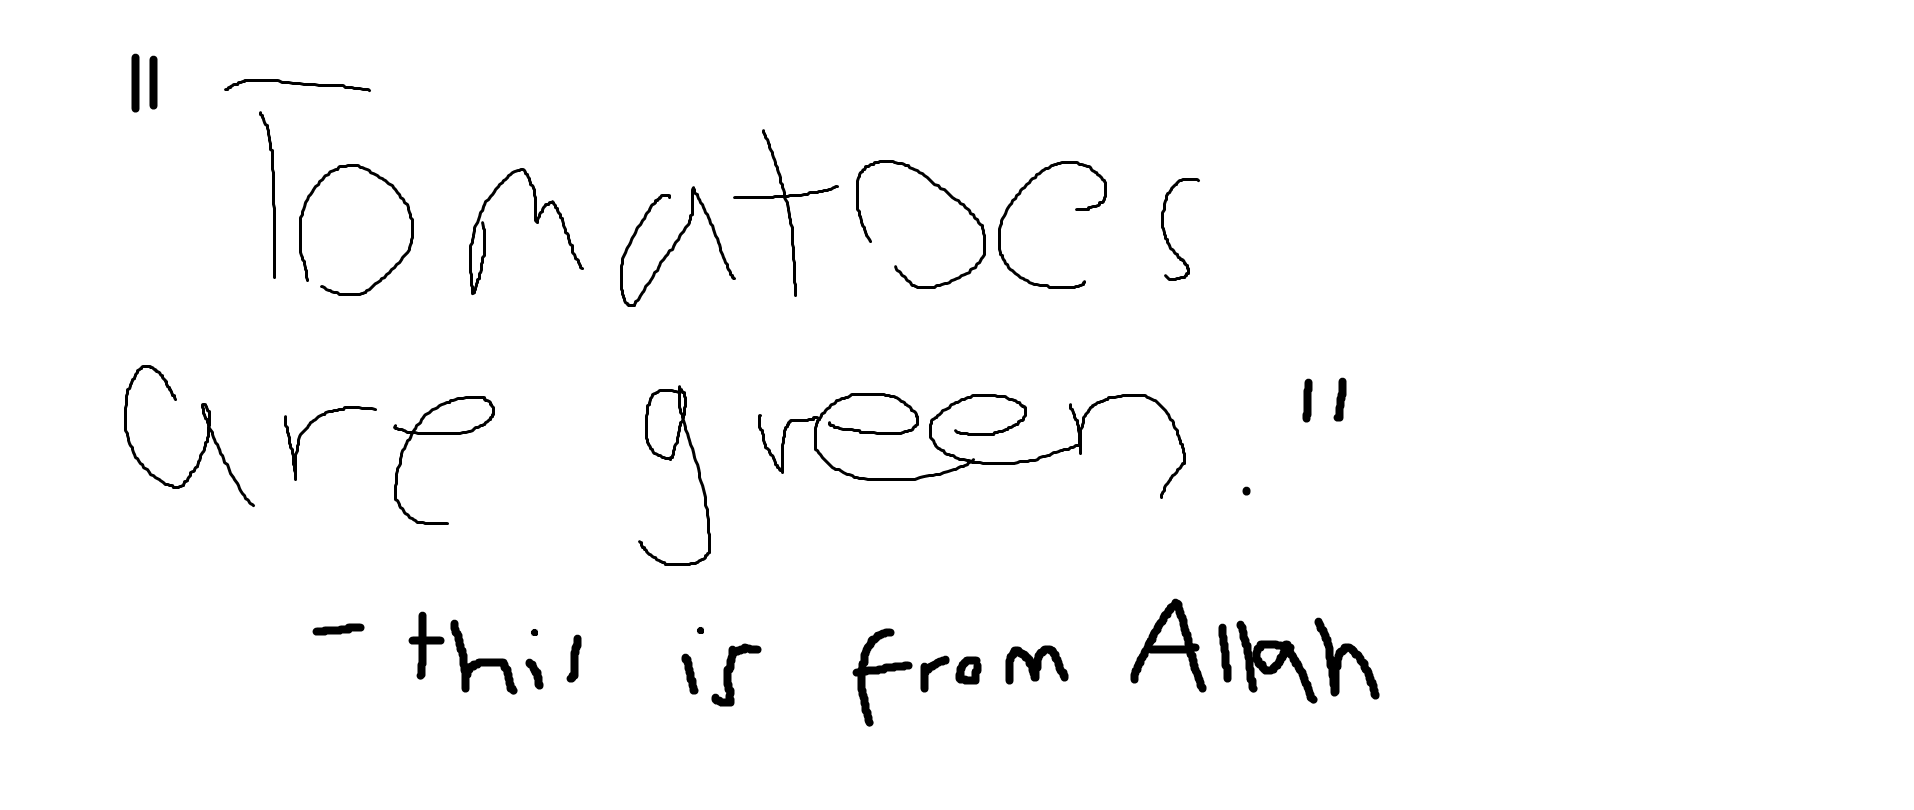 "Tomatoes
are green."
- this is from Allah